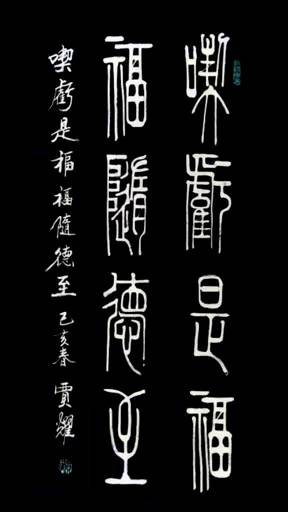 喫虧是福
福隨德至
喫虧是福福隨德至己亥春賈耀